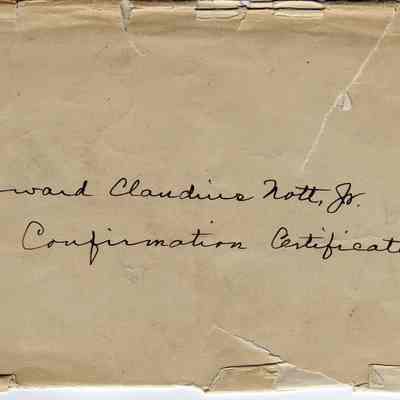 ward Claudius Nott, Jr.
Confirmation Certificate